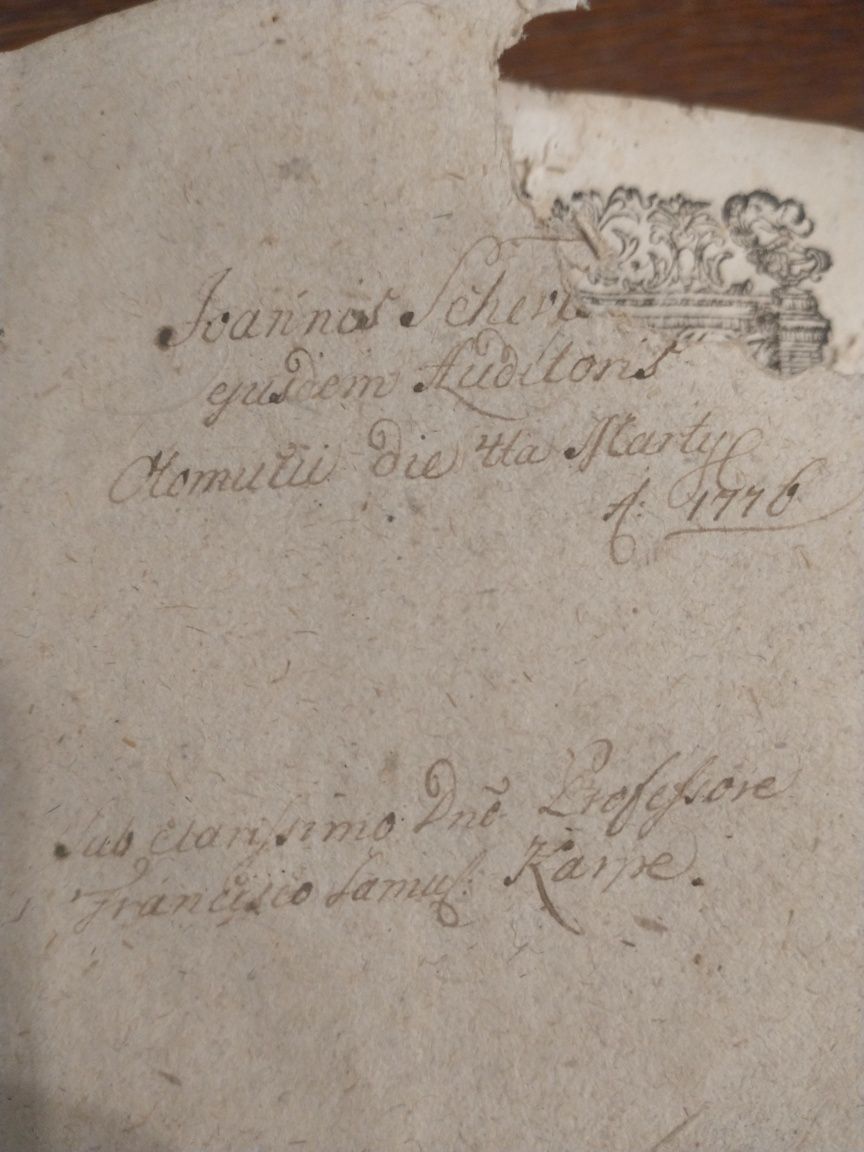 Joannis Scherc
ejusdem Auditoris
Olomutii die 4ta Martij
A: 1776
Sub clarissimo Dnô Professore
Francisco Samuel: Karpe.